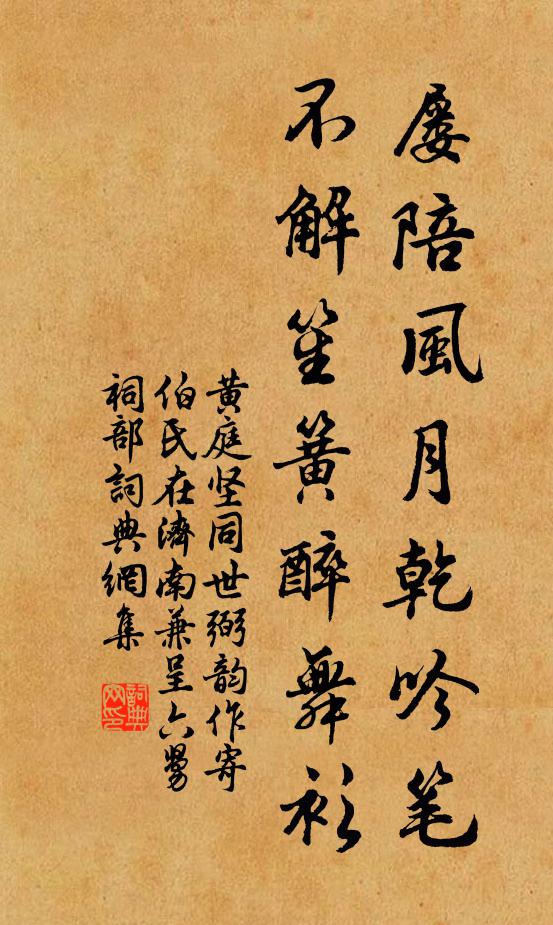 屡陪風月乾吟笔
不解笙簧醉舞衫
黄庭坚同世弼韵作寄
伯氏在濟南兼呈六舅
祠部詞典網集
詞典网印